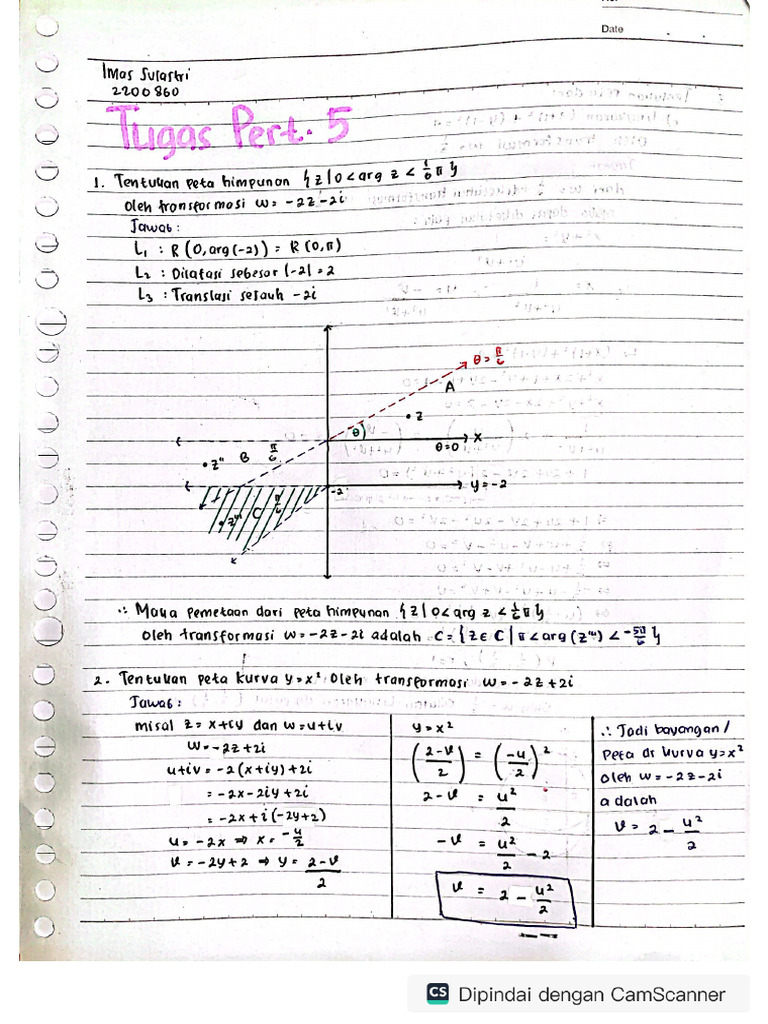 Date
Imas Sulastri
2200860
Tugas Pert. 5
1. Tentukan peta himpunan {z | 0 < arg z < 1/6 π}
oleh transformasi w = -2z - 2i
Jawab:
L₁ : R (0, arg (-2)) = R (0, π)
L₂ : Dilatasi sebesar |-2| = 2
L₃ : Translasi sejauh -2i
θ = π/6
A
•z
θ
x
θ=0
B
π/6
•z"
y = -2
-2
C
π/6
•z'''
∴ Maka pemetaan dari peta himpunan {z | 0 < arg z < 1/6 π}
oleh transformasi w = -2z - 2i adalah C = {z ∈ C | π < arg (z''') < -5π/6}
2. Tentukan peta kurva y = x² oleh transformasi w = -2z + 2i
Jawab:
misal z = x + iy dan w = u + iv
w = -2z + 2i
u + iv = -2(x + iy) + 2i
= -2x - 2iy + 2i
= -2x + i(-2y + 2)
u = -2x ⇒ x = -u/2
v = -2y + 2 ⇒ y = (2-v)/2
y = x²
((2-v)/2) = (-u/2)²
2 - v = u²/2
-v = u²/2 - 2
v = 2 - u²/2
∴ Jadi bayangan/
Peta dr kurva y = x²
oleh w = -2z - 2i
adalah
v = 2 - u²/2
CS Dipindai dengan CamScanner